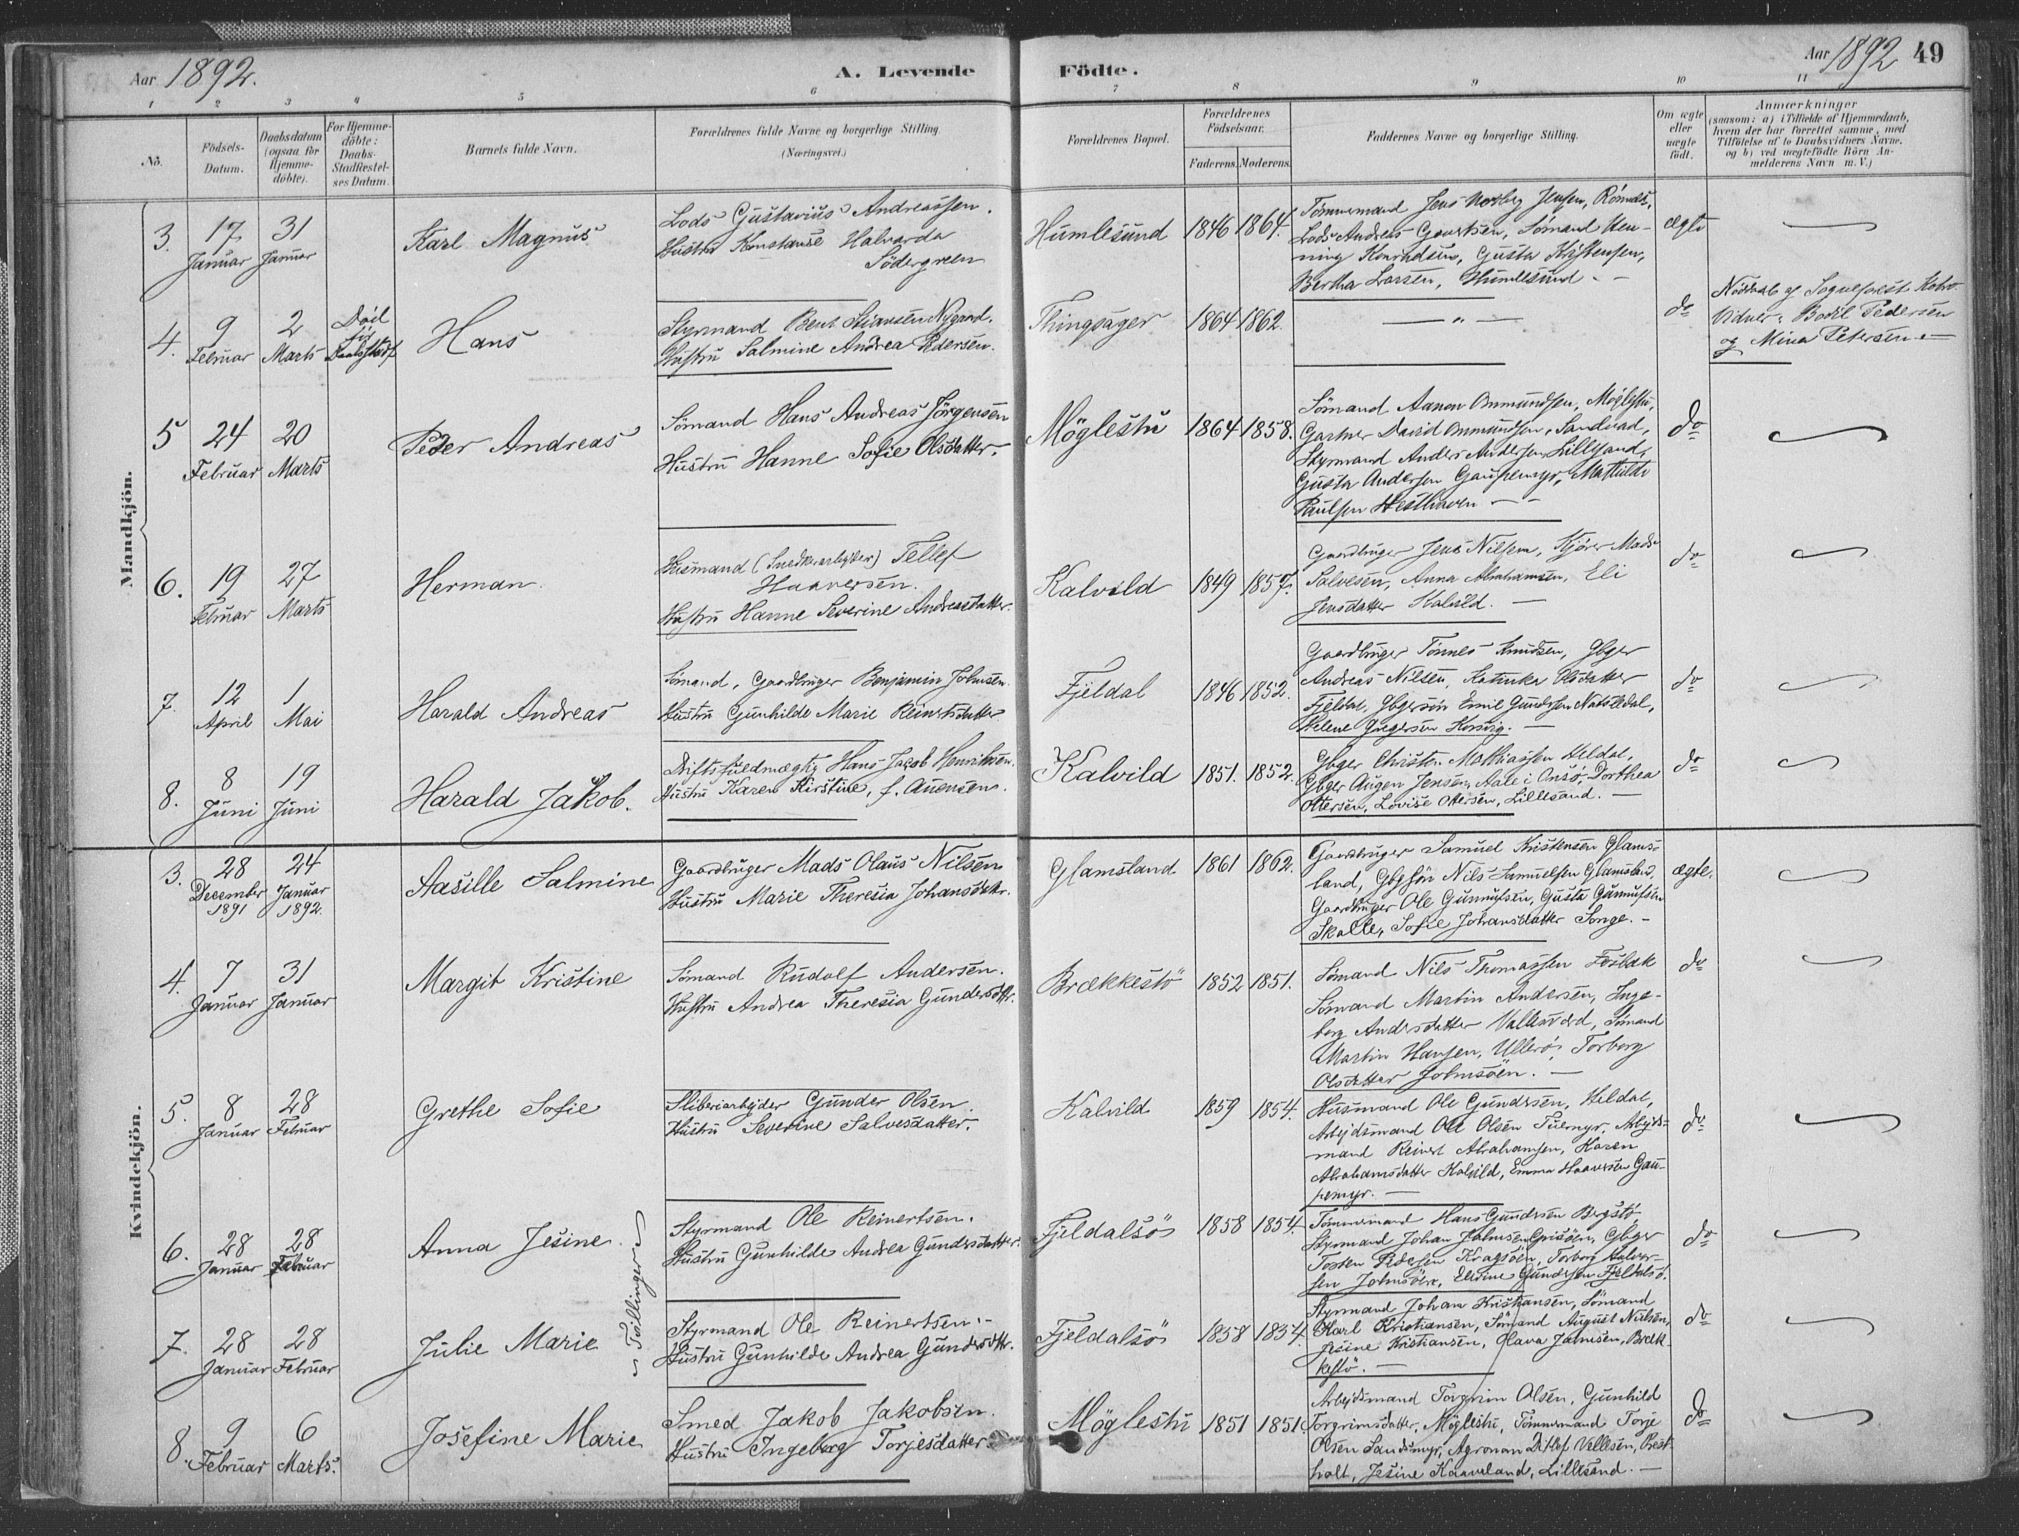 Aar 1892.
A. Levende Födte.
Aar 1892
49
1 2 3 4 5 6 7 8 9 10 11
No.
Födsels-Datum.
Daabsdatum (ogsaa for Hjemme-döbte).
For Hjemme-döbte: Daabs-Stadfæstel-ses Datum.
Barnets fulde Navn.
Forældrenes fulde Navne og borgerlige Stilling (Næringsvei.)
Forældrenes Bopæl.
Forældrenes Födselsaar.
Faderens. Moderens.
Faddernes Navne og borgerlige Stilling.
Om ægte eller uægte födt.
Anmærkninger
(saasom: a) i Tilfælde af Hjemmedaab,
hvem der har forrettet samme, med
Tilföielse af to Daabsvidners Navne,
og b) ved uægtefödte Börn An-
melderens Navn m. V.)
Mandkjön.
3. 17 Januar 31 Januar
Karl Magnus
Lods Gustavius Andreassen.
Hustru Konstanse Halvarda
Södergreen
Humlesund 1846 1864.
Tömmermand Jens Norberg Jensen,
Lods Andreas Geertsen, Sömand Hen-
ning Konradsen, Gusta Kristensen,
Bertha Larsen, Humlesund -
ægte
4. 9 Februar 2 Marts
Död før Daabsstadf.
Hans
Styrmand Bent Stiansen Nygaard.
Hustru Salmine Andrea Pedersen.
Thingsager 1864 1862.
— " —
do
Nöddaab af Sogneprest
Vidner: Bodil Pedersen
og Mina Petersen. —
5 24 Februar 20 Marts
Peder Andreas
Sömand Hans Andreas Jörgensen
Hustru Hanne Sofie Olsdatter.
Möglestu 1864 1858.
Sömand Aanon Ommundsen, Möglestu,
Gartner David Ommundsen, Sandvad,
Styrmand Anders Andersen Lillesand,
Gusta Andersen Gaupemyr, Mathilde
Paulsen Hesthaven - -
do
6. 19 Februar 27 Marts
Herman.
Husmand (Snedkerarbeider) Tellef
Haaversen.
Hustru Hanne Severine Andreasdatter.
Kalvild 1849 1857.
Gaardbruger Jens Nilsen, Kjörer Mads
Salvesen, Anna Abrahamsen, Eli
Jensdatter Kalvild. —
do
7. 12 April 1 Mai
Harald Andreas
Sömand, Gaardbruger Benjamin Johnsen.
Hustru Gunhilde Marie Reinertsdatter
Fjeldal 1846 1852.
Gaardbruger Tönnes Knudsen, Gbger
Andreas Nilsen, Katinka Olsdatter
Fjeldal, Gbgersön Emil Gundersen Natvedal,
Helene Jörgensen Korsvig. —
do
8. 8 Juni 19 Juni
Harald Jakob.
Driftsfuldmægtig Hans Jacob Henriksen.
Hustru Karen Kirstine, f. Auensen.
Kalvild 1851. 1852.
Gbger Christen Mathiassen Heldal,
Gbger Augen Jensen, Aale i Onsö, Dorthea
Ottersen, Lovise Ottersen, Lillesand. —
do
Kvindekjön.
3. 28 December 1891 24 Januar 1892.
Aasille Salmine
Gaardbruger Mads Olaus Nilsen
Hustru Marie Theresia Johansdatr.
Glamsland 1861 1862.
Gaardbruger Samuel Kristensen Glams-
land, Gbgsön Nils Samuelsen Glamsland,
Gaardbruger Ole Gunnufsen, Gusta Gunnufsen
Skalle, Sofie Johansdatter Songe. -
ægte.
4. 7 Januar 31 Januar
Margit Kristine
Sömand Rudolf Andersen.
Hustru Andrea Theresia Gundersdtr.
Brækkestö 1852 1851.
Sömand Nils Thomassen Fosbæk
Sömand Martin Andersen, Inge-
borg Andersdatter Vallesværd, Sömand
Martin Hansen, Ulleröi, Torborg
Olsdatter Johnsöen. —
do
5. 8 Januar 28 Februar
Grethe Sofie
Sliberiarbejder Gunder Olsen.
Hustru Severine Salvesdatter.
Kalvild 1859 1854.
Husmand Ole Gundersen, Heldal,
Arbejdsmand Ole Olsen Tuemyr, Arbejds-
mand Reinert Abrahamsen, Karen
Abrahamsdatter Kalvild, Emma Haaversen Gau-
pemyr. —
do
6. 28 Januar 28 Februar
Anna Jesine.
Tvillinger
Styrmand Ole Reinertsen.
Hustru Gunhilde Andrea Gundersdatter.
Fjeldalsö 1858 1854.
Tömmermand Hans Gundersen Bergstö
Styrmand Johan Johnsen Grisöen, Gbger
Tosten Pedersen Kragsöen, Torborg Halvor-
sen Johnsöen, Elevine Gundersen Fjeldalsö.
do
7. 28 Januar 28 Februar
Julie Marie
Styrmand Ole Reinertsen. -
Hustru Gunhilde Andrea Gundersdtr.
Fjeldalsö 1858 1854.
Styrmand Johan Kristiansen, Sömand
Karl Kristiansen, Sömand August Nielsen,
Jesine Kristiansen, Olava Johnsen, Bræk-
kestö. —
do
8. 9 Februar 6 Marts.
Josefine Marie
Smed Jakob Jakobsen.
Hustru Ingeborg Torjesdatter.
Möglestu 1851 1851.
Arbejdsmand Torgrim Olsen, Gunhild
Torgrimsdatter, Möglestu, Tömmermand Torje
Olsen Sandsmyr, Agronom Ditlef Vellesen, Prest-
holt, Jesine Kaaveland, Lillesand. —
do